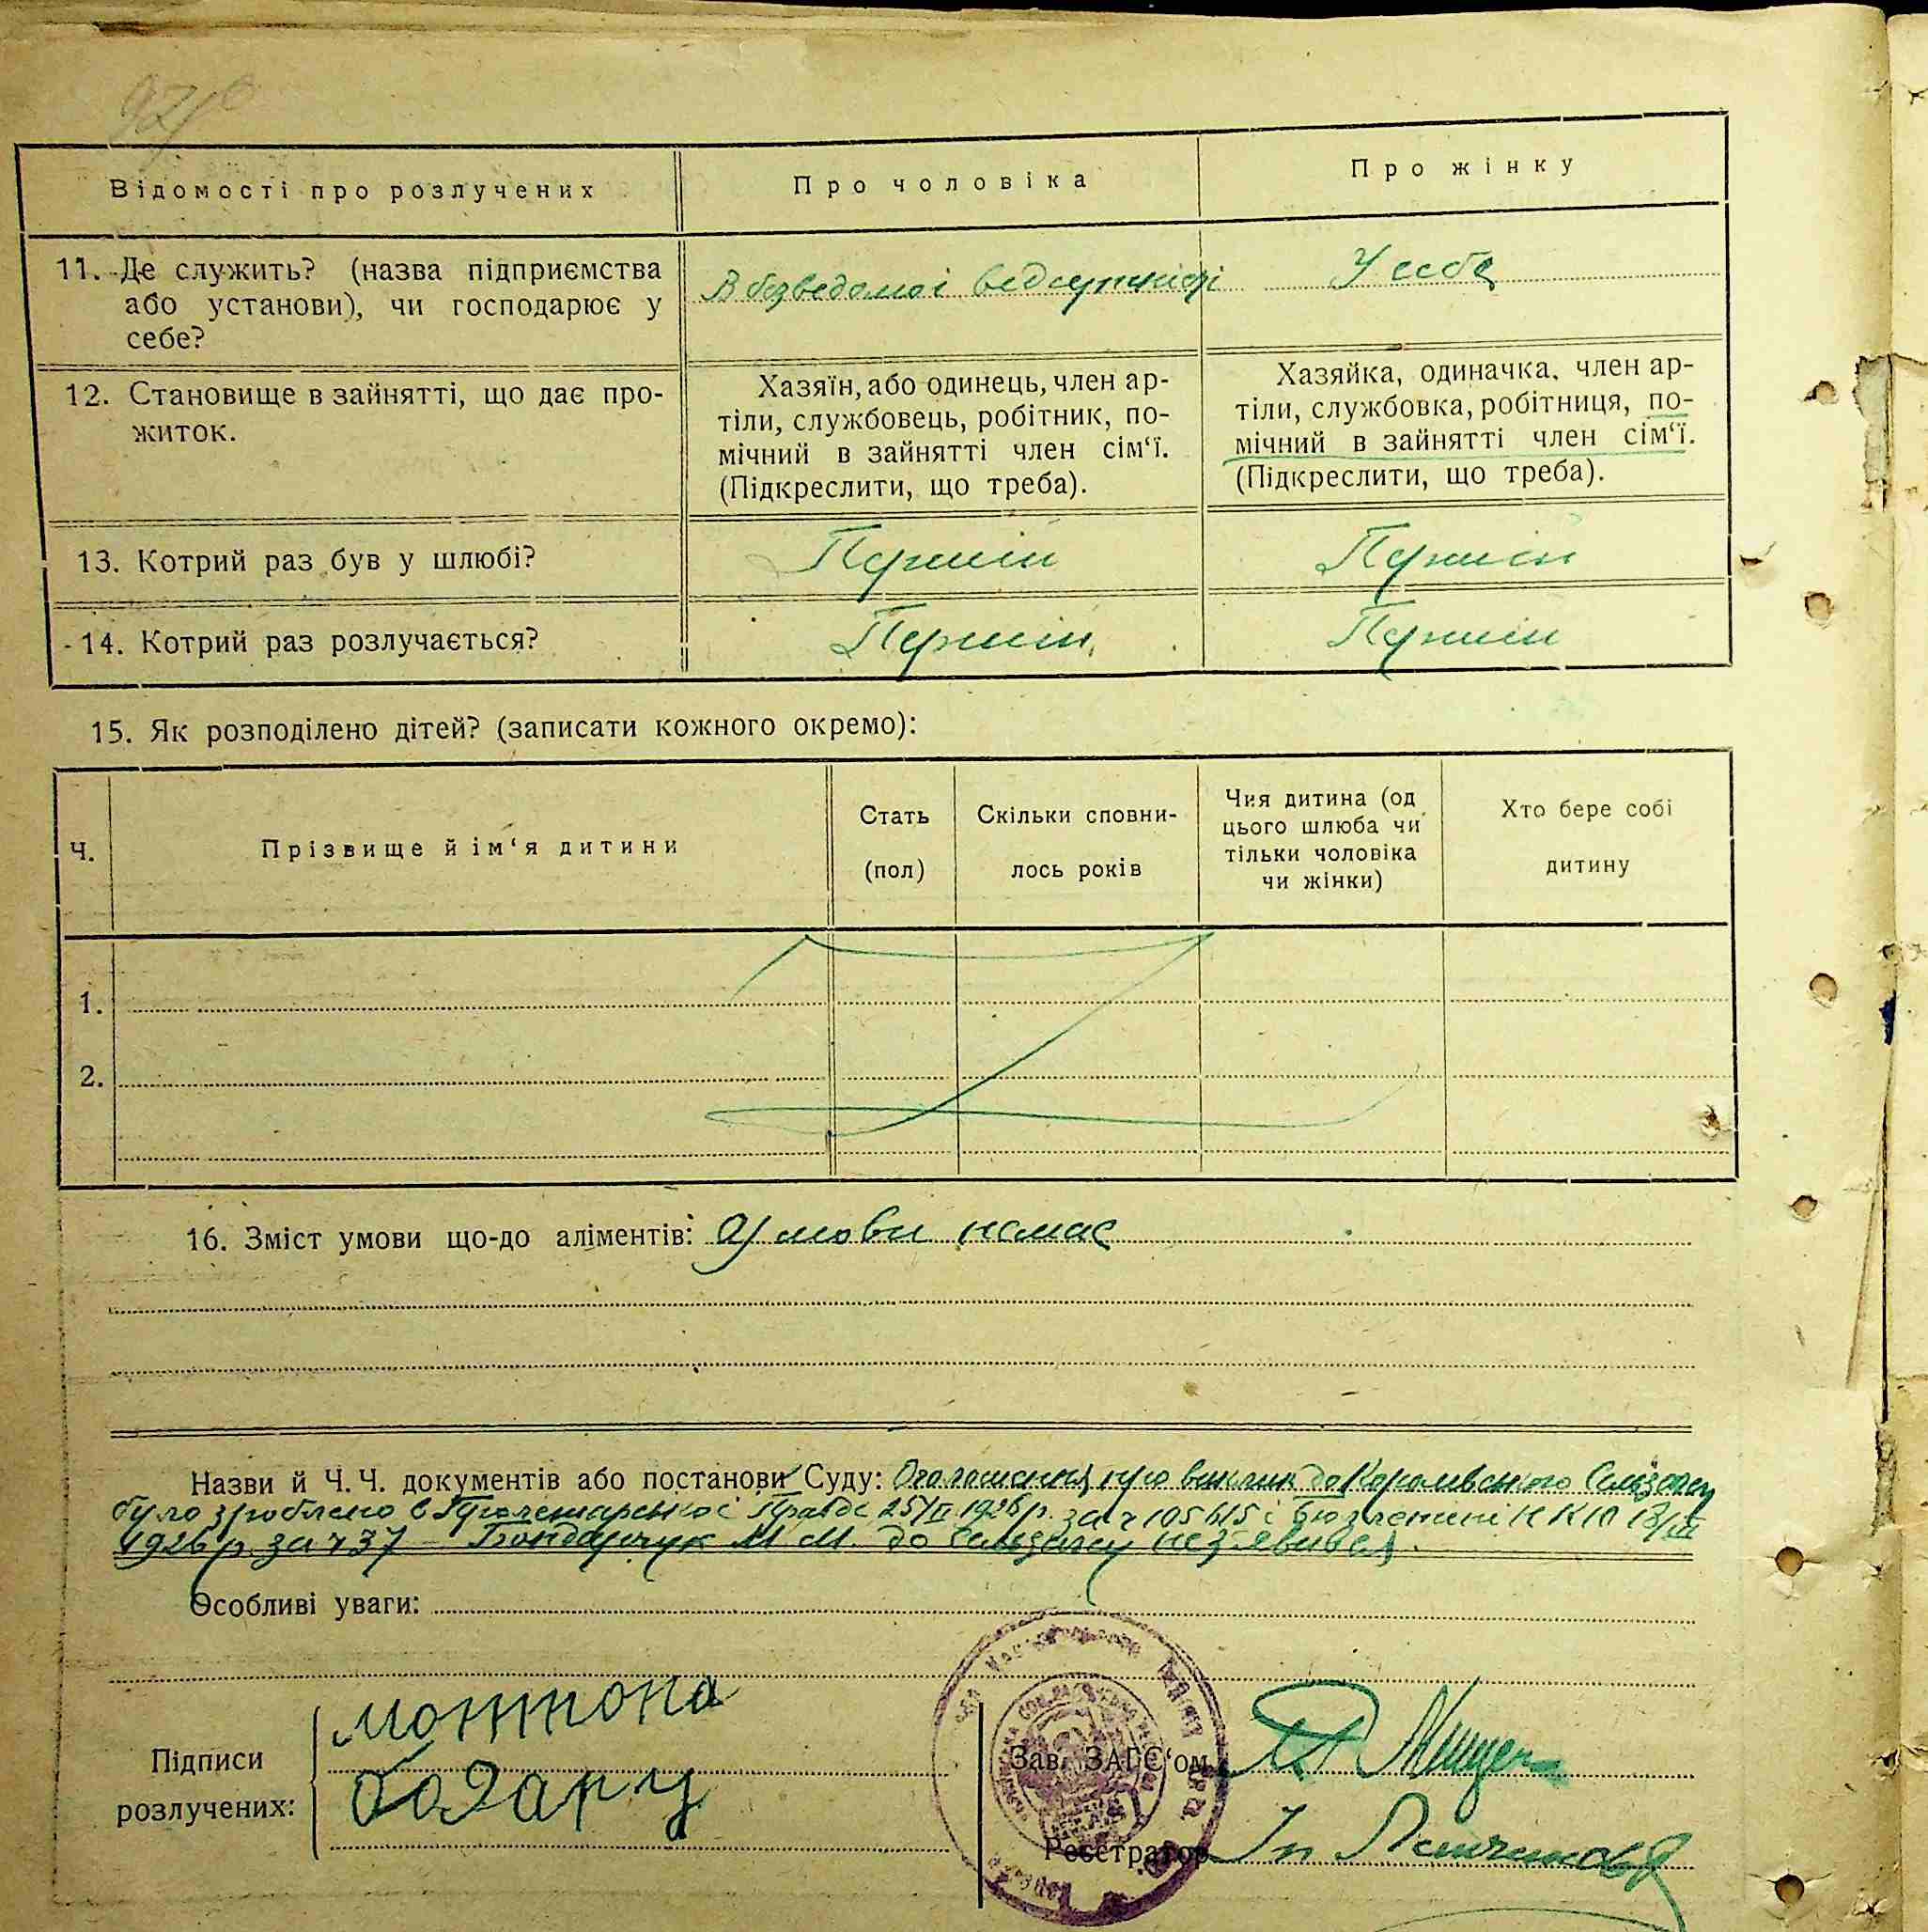 Відомості про розлучених
Про чоловіка
Про жінку
11. Де служить? (назва підприємства
або установи), чи господарює у
себе?
В безведомоі ведсутносі
У себе
12. Становище в зайнятті, що дає про-
житок.
Хазяїн, або одинець, член ар-
тіли, службовець, робітник, по-
мічний в зайнятті член сім‘ї.
(Підкреслити, що треба).
Хазяйка, одиначка, член ар-
тіли, службовка, робітниця, по-
мічний в зайнятті член сім‘ї.
(Підкреслити, що треба).
13. Котрий раз був у шлюбі?
Перший
Перший
14. Котрий раз розлучається?
Перший
Перший
15. Як розподілено дітей? (записати кожного окремо):
Ч.
Прізвище й ім‘я дитини
Стать
(пол)
Скільки сповни-
лось років
Чия дитина (од
цього шлюба чи
тільки чоловіка
чи жінки)
Хто бере собі
дитину
1.
2.
16. Зміст умови що-до аліментів: Умови немає
Назви й Ч.Ч. документів або постанови Суду: Оголошення про виклик до
було зроблено в Пролетарської Правде 25/ 1926 р. за ч 105 і Бюлетені
1926 р. за ч 37 — Бондарчук М М. до не з'явився.
Особливі уваги:
Підписи
розлучених:
мотрона
бодарч
Зав. ЗАГС‘ом
Реєстратор